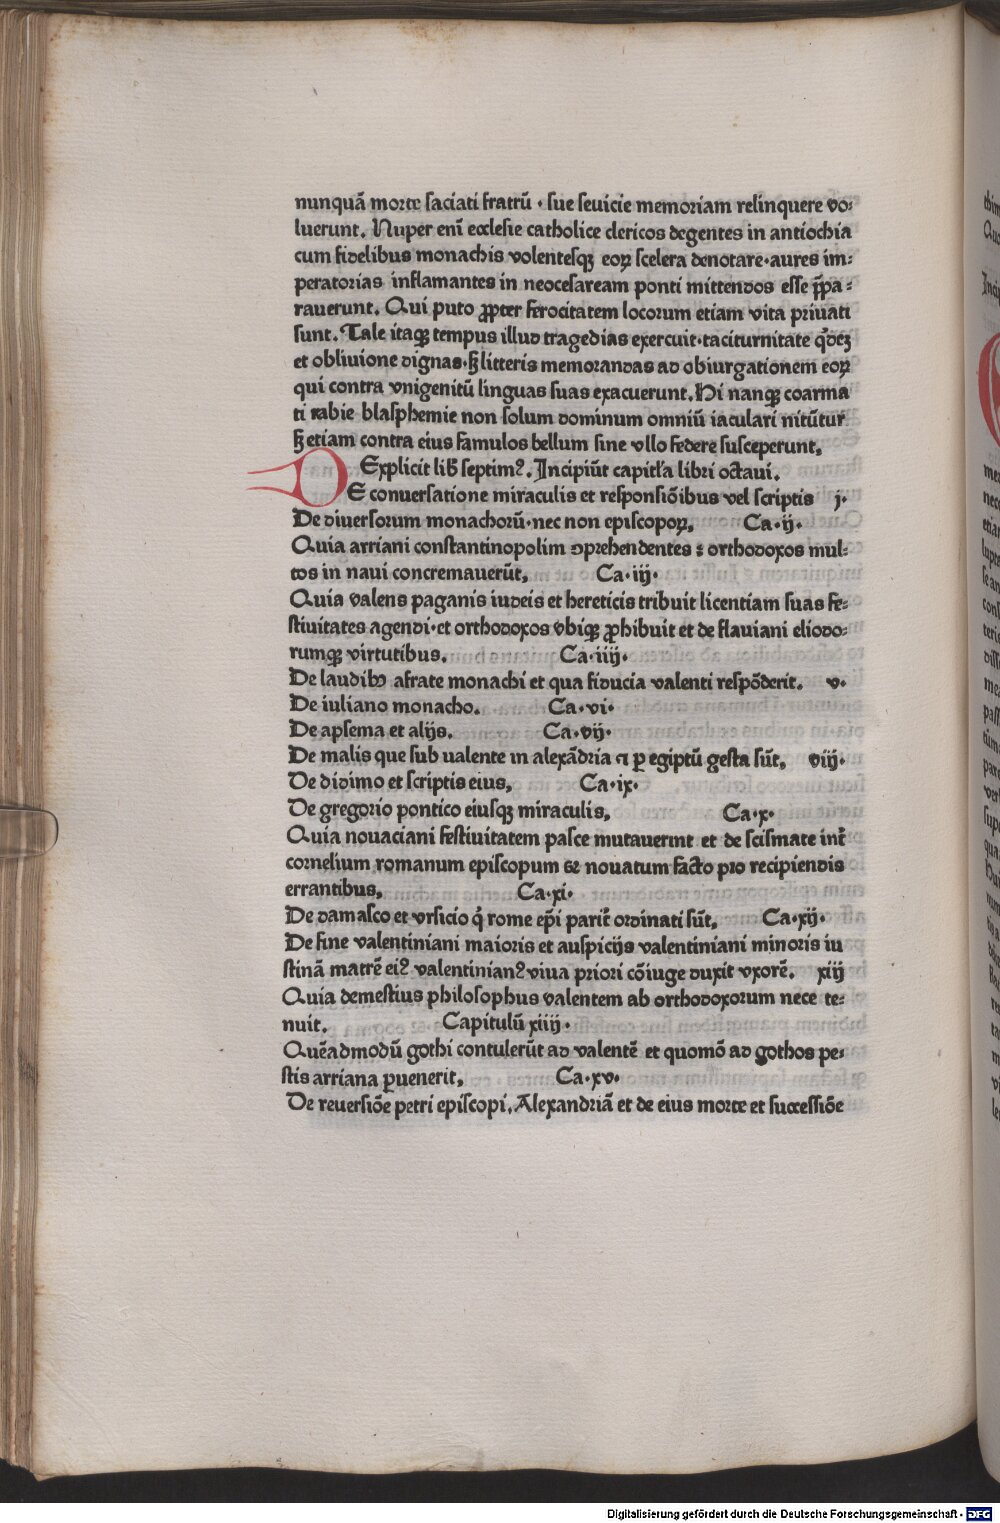 nunquã morte saciati fratrũ · sue seuicie memoriam relinquere vo⸗
luerunt. Nuper enĩ ecclesie catholice clericos degentes in antiochia
cum fidelibus monachis volentesqꝫ eoꝝ scelera denotare·aures im⸗
peratorias inflamantes in neocesaream ponti mittendos esse p̃pa⸗
rauerunt. Qui puto ꝓpter ferocitatem locorum etiam vita priuati
sunt. Tale itaqꝫ tempus illud tragedias exercuit·taciturnitate q̃deꝫ
et obliuione dignas·sꝫ litteris memorandas ad obiurgationem eoꝝ
qui contra vnigenitũ linguas suas exacuerunt. Hi nanqꝫ coarma
ti rabie blasphemie non solum dominum omniũ iaculari nitũtur
sꝫ etiam contra eius famulos bellum sine vllo federe susceperunt.
Explicit lib̃ septimꝰ. Incipiũt capitl'a libri octaui.
DE conuersatione miraculis et responsiõibus vel scriptis j.
De diuersorum monachorũ·nec non episcopoꝝ. Ca·ij·
Quia arriani constantinopolim ꝯprehendentes : orthodoxos mul⸗
tos in naui concremauerũt. Ca·iij·
Quia valens paganis iudeis et hereticis tribuit licentiam suas fe⸗
stiuitates agendi·et orthodoxos vbiqꝫ ꝓhibuit et de flauiani eliodo⸗
rumqꝫ virtutibus. Ca·iiij·
De laudibꝰ afrate monachi et qua fiducia valenti respõderit. v·
De iuliano monacho. Ca·vi·
De apsema et alijs. Ca·vij·
De malis que sub ualente in alexãdria ⁊ ꝑ egiptũ gesta sũt. viij·
De didimo et scriptis eius. Ca·ix·
De gregorio pontico eiusqꝫ miraculis. Ca·x·
Quia nouaciani festiuitatem pasce mutauerint et de scismate int̃
cornelium romanum episcopum & nouatum facto pro recipiendis
errantibus. Ca·xi·
De damasco et vrsicio q̃ rome ep̃i parit̃ ordinati sũt. Ca·xij·
De fine valentiniani maioris et auspicijs valentiniani minoris iu
stinã matrẽ eiꝰ valentinianꝰ viua priori cõiuge duxit vxorẽ. xiij
Quia demestius philosophus valentem ab orthodoxorum nece te⸗
nuit. Capitulũ xiiij·
Quẽadmodũ gothi contulerũt ad valentẽ et quomõ ad gothos pe⸗
stis arriana ꝑuenerit. Ca·xv·
De reuersiõe petri episcopi. Alexandriã et de eius morte et successiõe
Digitalisierung gefördert durch die Deutsche Forschungsgemeinschaft - DFG